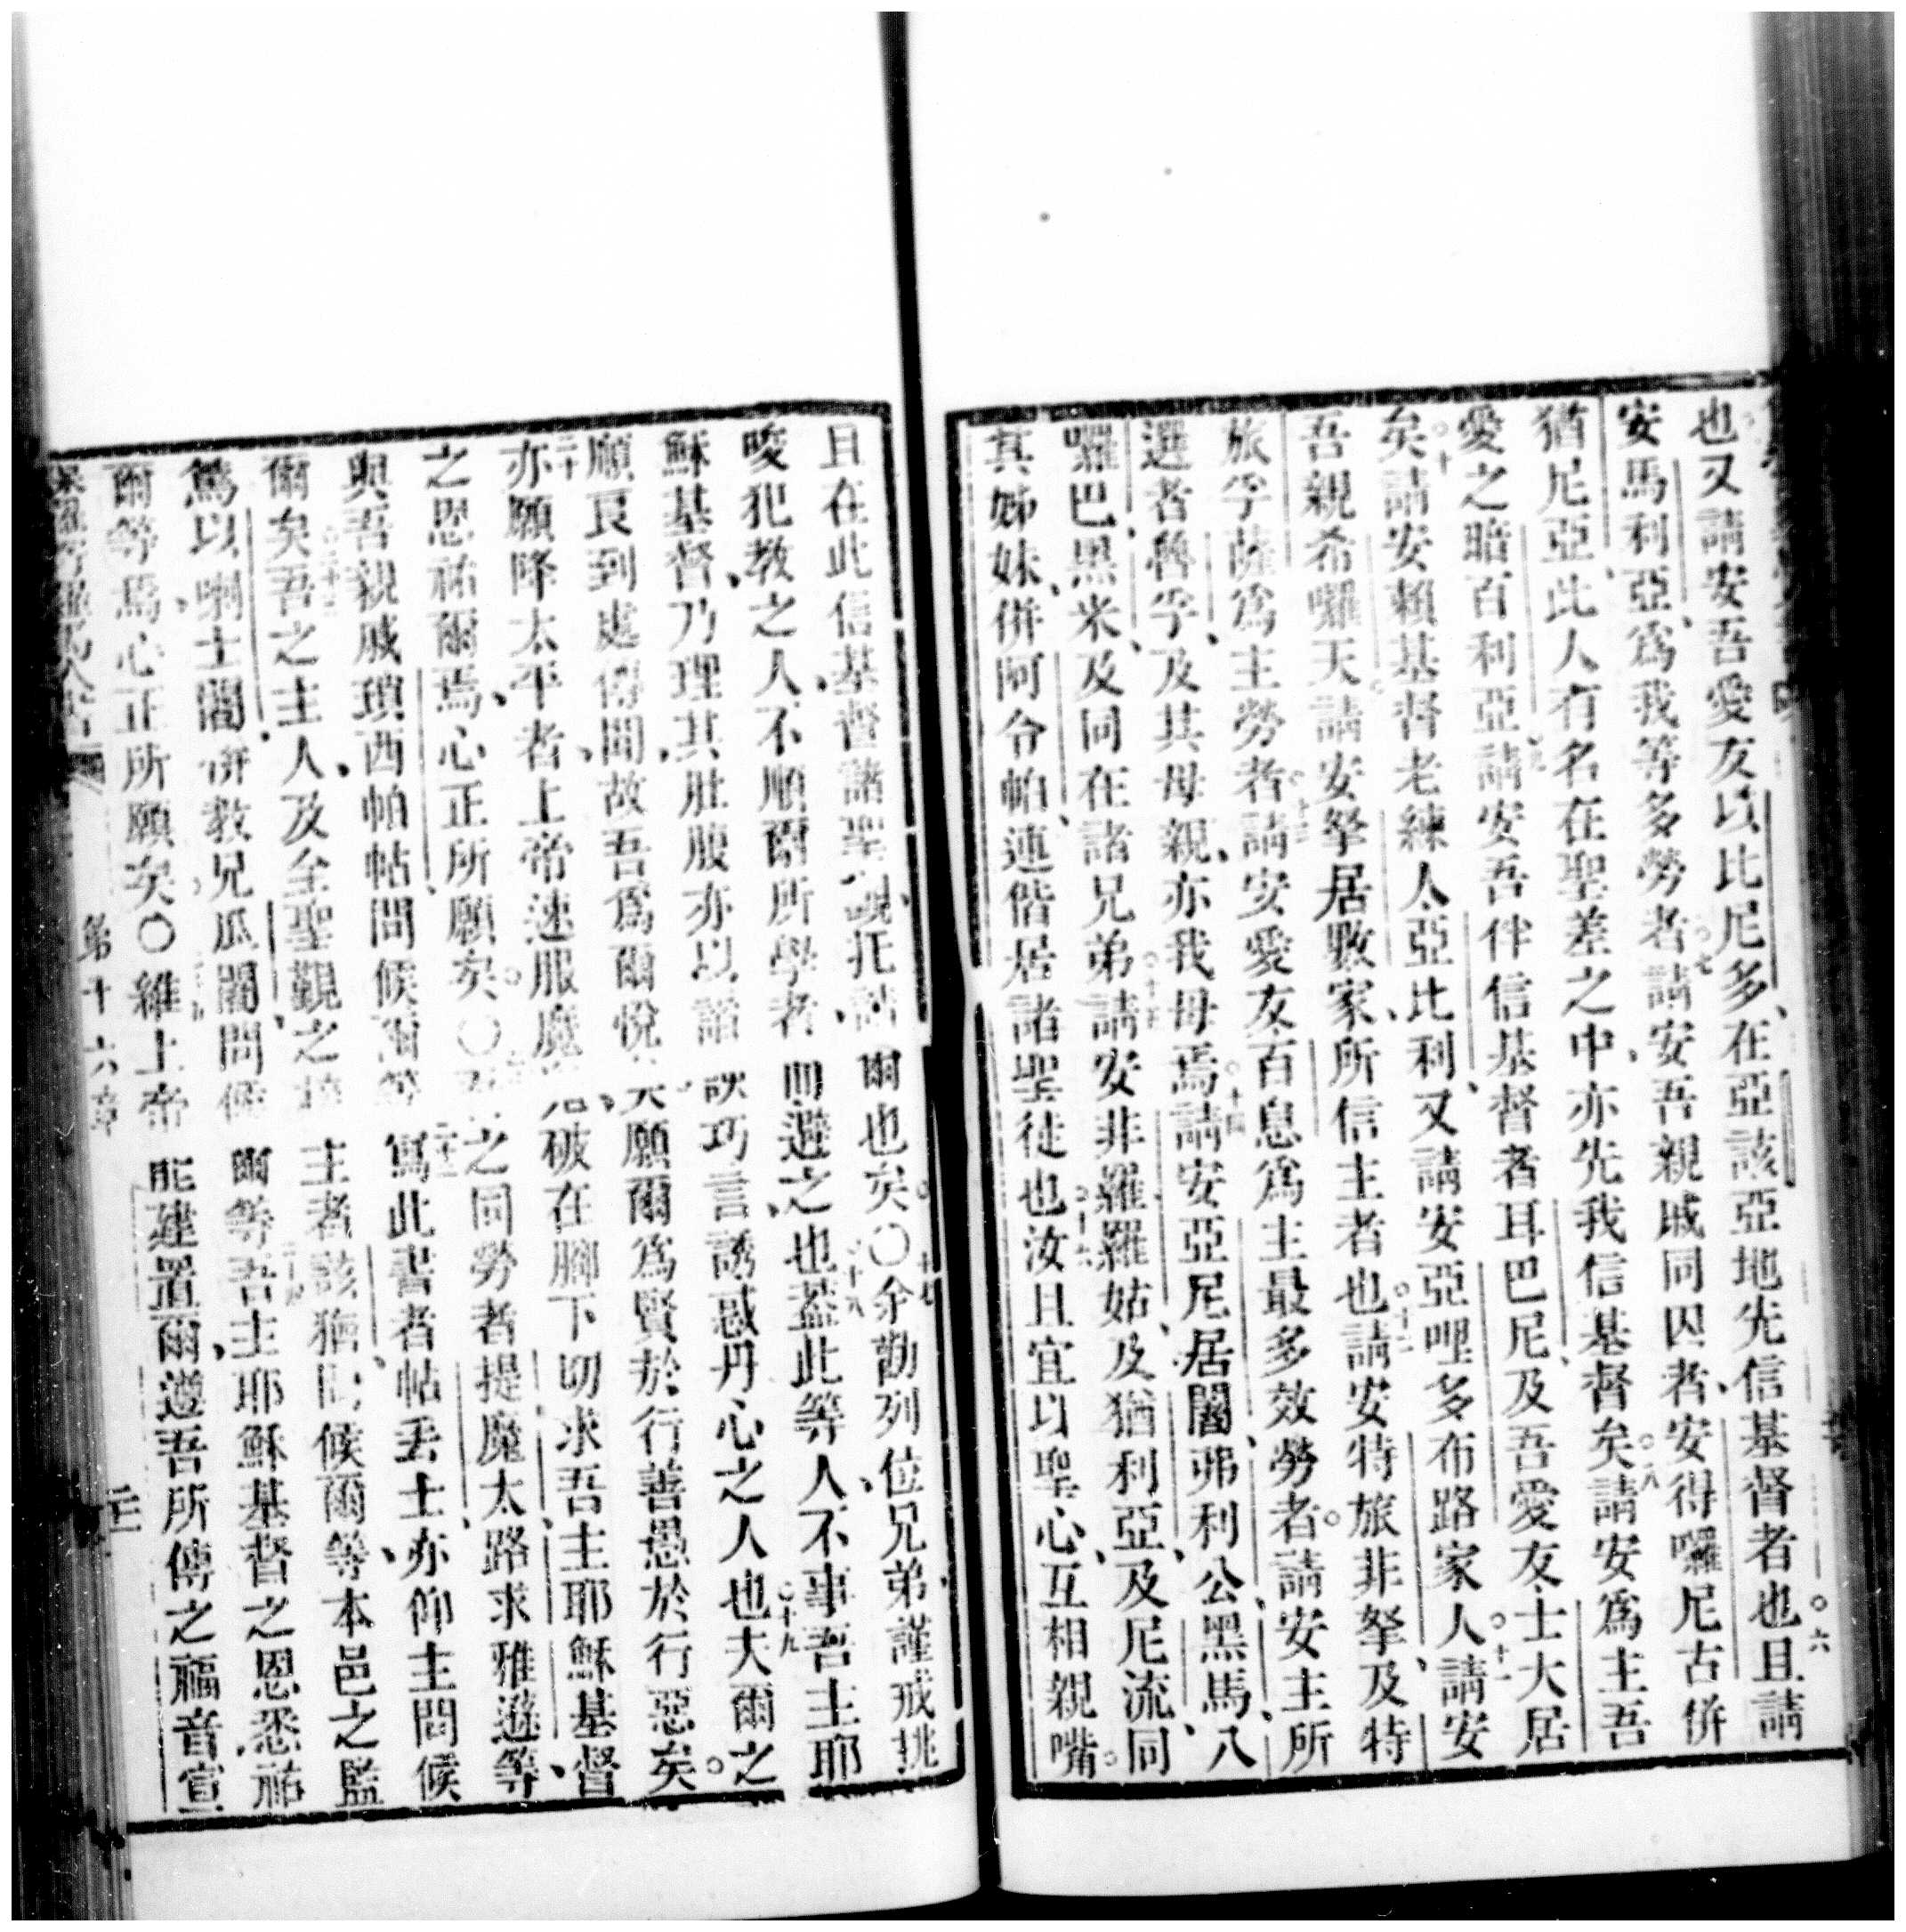 也又請安吾愛友以比尼多、在亞該亞地先信基督者也。六且請
安馬利亞、爲我等多勞者。七請安吾親戚同囚者、安得囉尼古併
猶尼亞、此人有名在聖差之中、亦先我信基督矣。八請安爲主吾
愛之暗百利亞、九請安吾伴信基督者耳巴尼、及吾愛友士大居
矣。十請安賴基督老練人亞比利、又請安亞哩多布路家人。十一請安
吾親希囉天、請安拏居數家、所信主者也。十二請安特旅非拏、及特
旅孚薩爲主勞者。十三請安愛友百息爲主最多效勞者。請安主所
選者魯孚、及其母親、亦我母焉。十四請安亞尼居闊、弗利公、黑馬、八
囉巴、黑米、及同在諸兄弟。十五請安非羅羅姑、及猶利亞、及尼流同
其姊妹、併阿令帕、連偕居諸聖徒也。十六汝且宜以聖心、互相親嘴。
且在此信基督諸聖託請爾也矣。〇十七余勸列位兄弟、謹戒挑
唆犯教之人、不順爾所學者、而避之也。十八蓋此等人、不事吾主耶
穌基督、乃理其肚腹、亦以諂諛巧言誘惑丹心之人也。十九夫爾之
順良到處傳聞、故吾爲爾悅矣、願爾爲賢於行善、愚於行惡矣。
二十亦願降太平者上帝速服魔鬼、破在腳下、切求吾主耶穌基督
之恩祐爾焉、心正所願矣。〇之同勞者提魔太、路求、雅遜等、
與吾親戚瑣西帕帖問候爾等二十二寫此書者帖丟士、亦仰主問候
爾矣。二十三吾之主人、及全聖觀之主者該猶問候爾等、本邑之監
以喇士闊、併教兄瓜闊問候爾等吾主耶穌基督之恩、悉祐
爾等焉、心正所願矣〇維上帝能建置爾、遵吾所傳之福音宣
第十六章